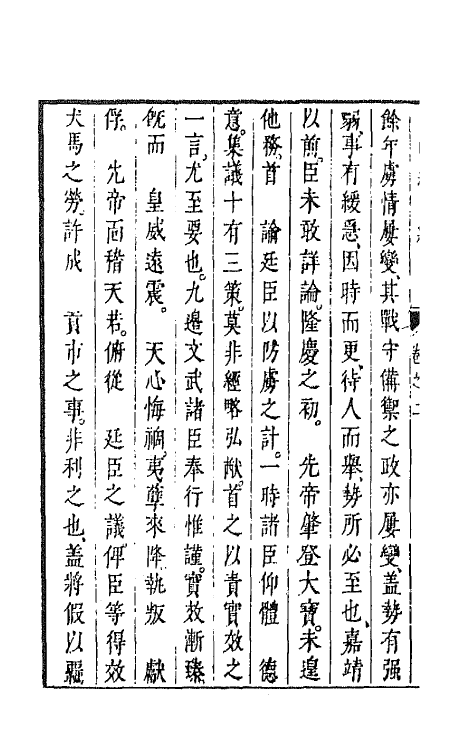 餘年虜情屢變、其戰守備禦之政亦屢變、盖勢有强
弱、事有緩急、因時而更、待人而舉、勢所必至也、嘉靖
以前、臣未敢詳論。隆慶之初。　先帝肇登大寶。未遑
他務、首　論廷臣以防虜之計。一時諸臣仰體　德
意。集議十有三策。莫非經略弘猷。首之以責實效之
一言。尤至要也。九邊文武諸臣奉行惟謹。實效漸臻
旣而　皇威遠震。　天心悔禍。夷孽來降、執叛　獻
俘。　先帝靣稽天若。俯從　廷臣之議俾臣等得效
犬馬之勞。許成　貢市之事。非利之也、盖將假以羈